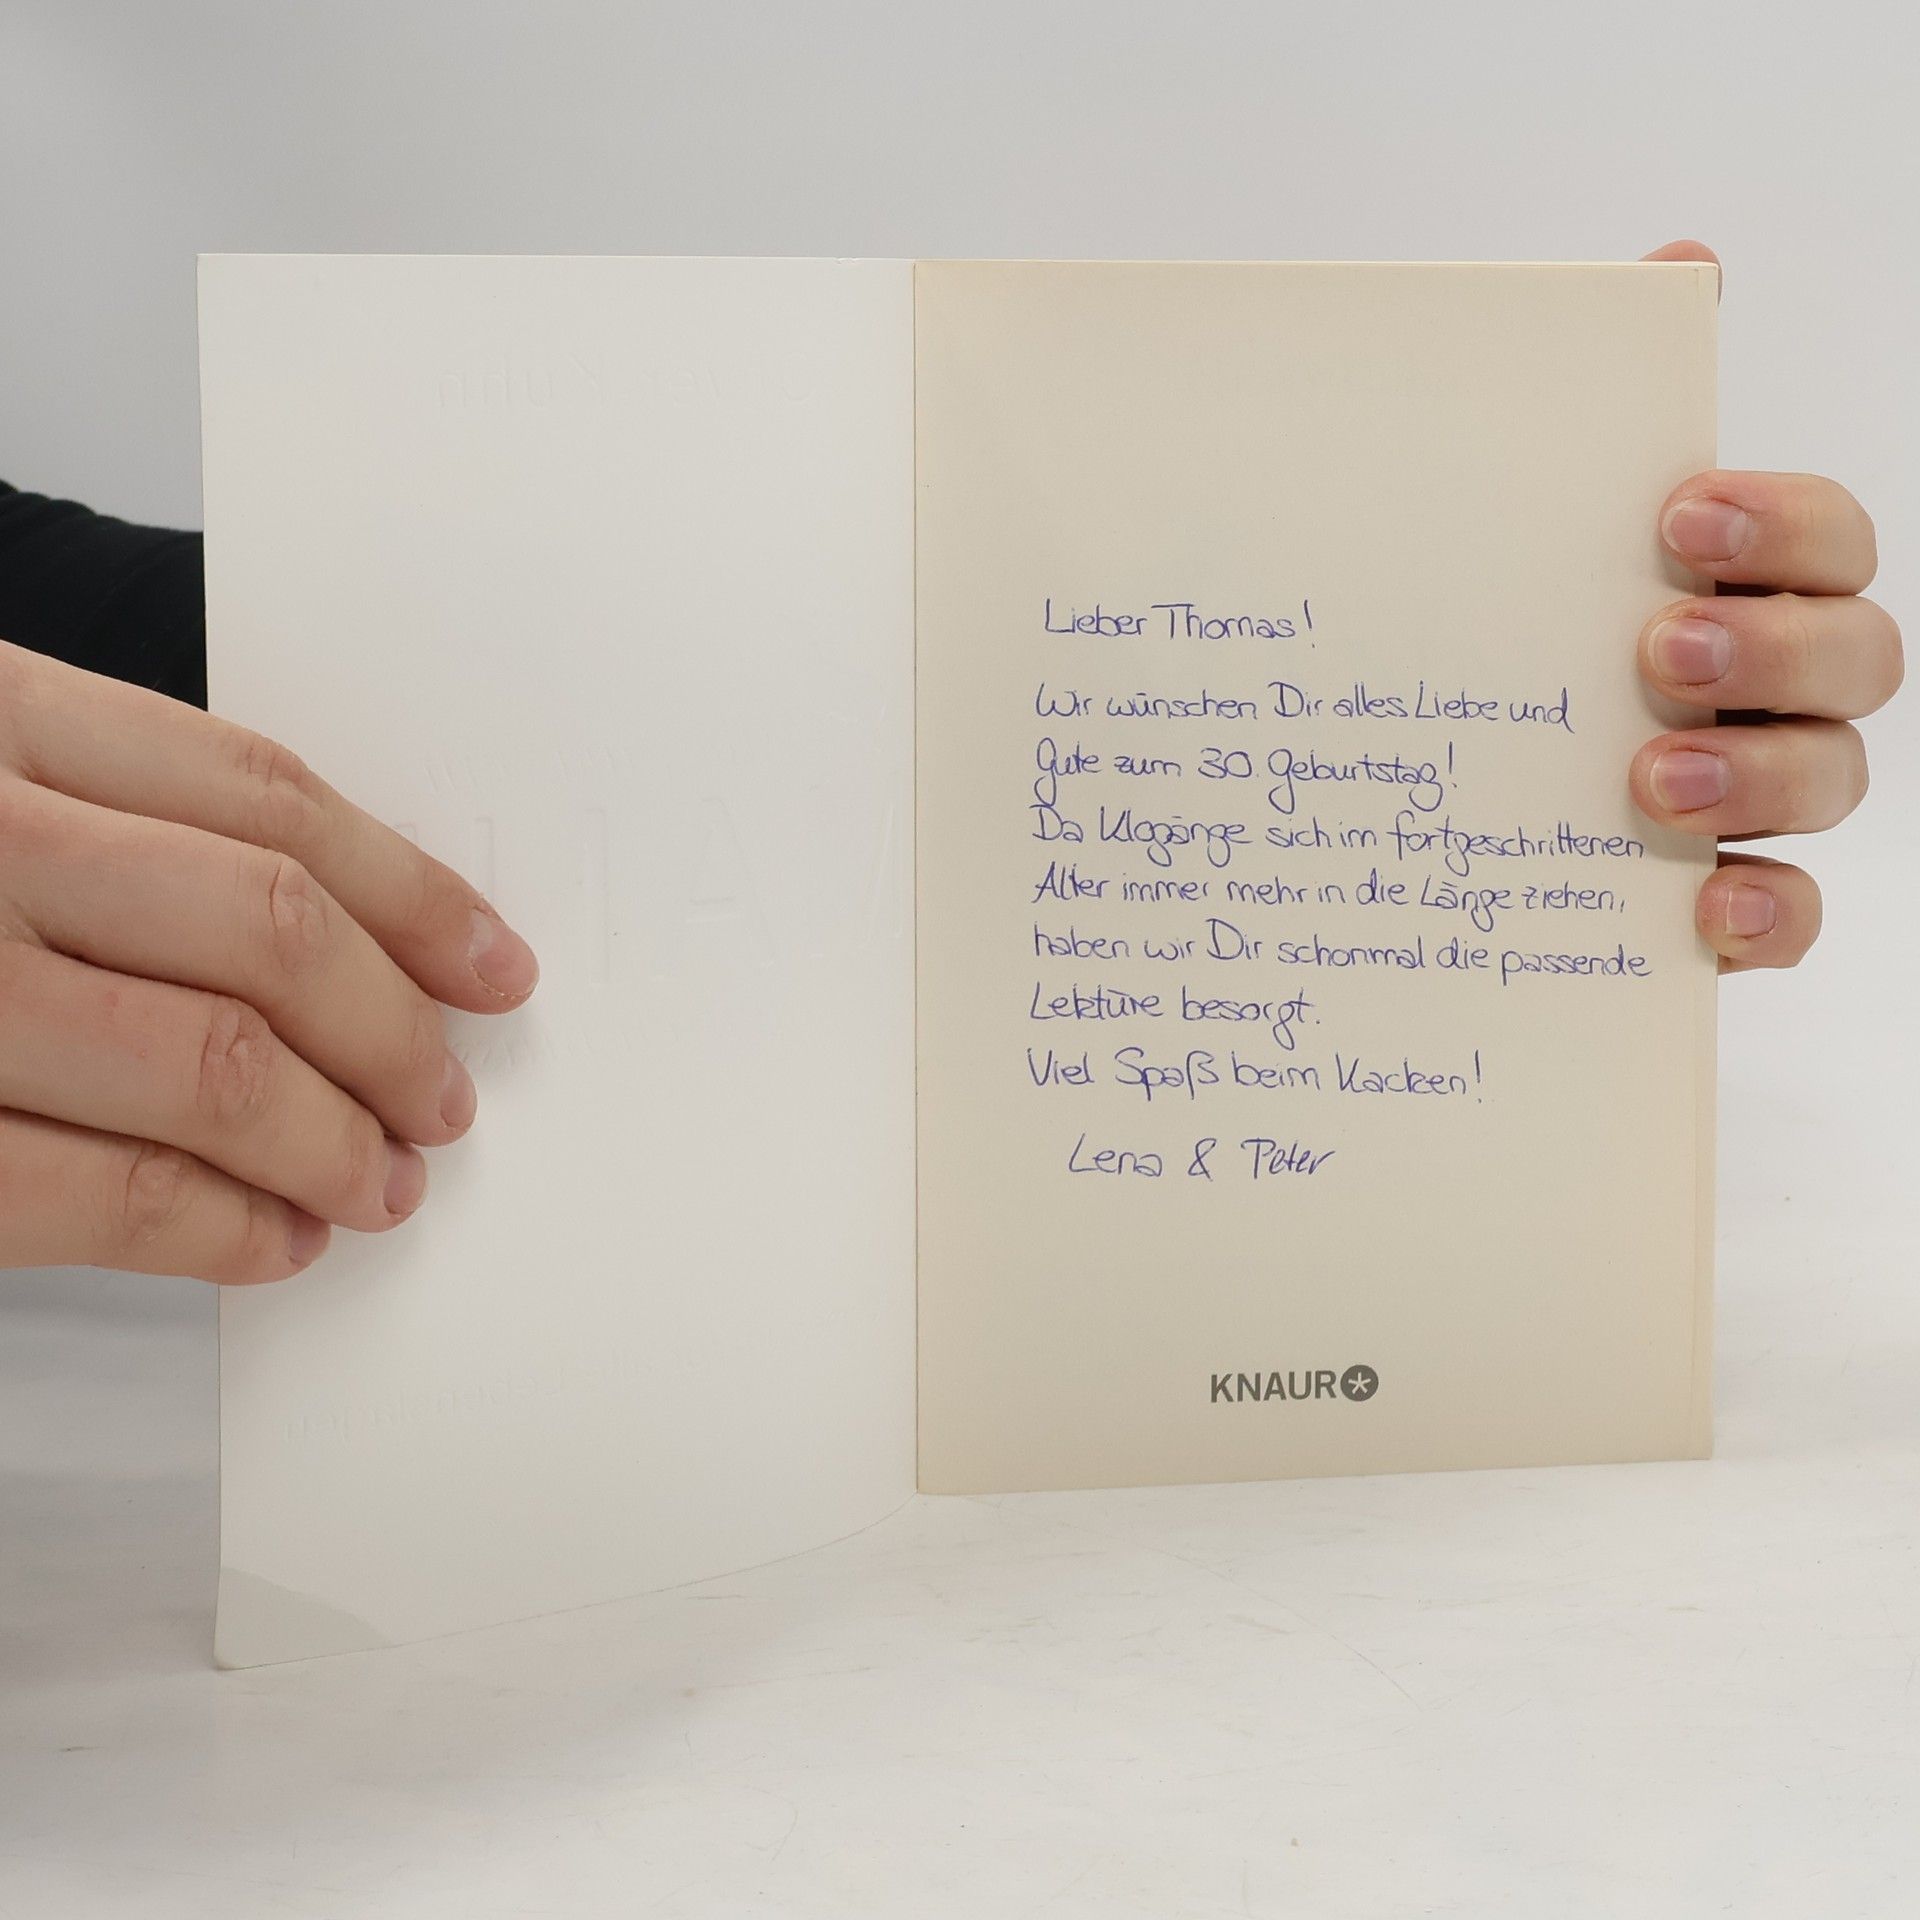 Oliver Kuhn
Lieber Thomas!
Wir wünschen Dir alles Liebe und
Gute zum 30. Geburtstag!
Da Klogänge sich im fortgeschrittenen
Alter immer mehr in die Länge ziehen,
haben wir Dir schonmal die passende
Lektüre besorgt.
Viel Spaß beim Kacken!
Lena & Peter
KNAUR